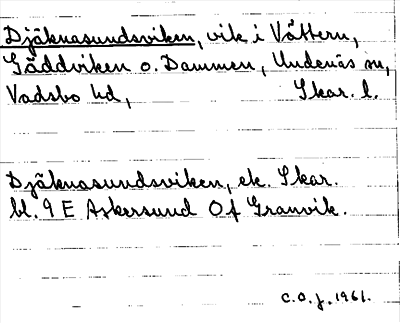 Djäknasundsviken, vik i Vättern,
Gäddviken o. Dammen, Undenäs sn,
Vadsbo hd, Skar. l.
Djäknasundsviken, ek. Skar.
bl. 9 E Askersund Of Granvik.
C.O.J. 1961.